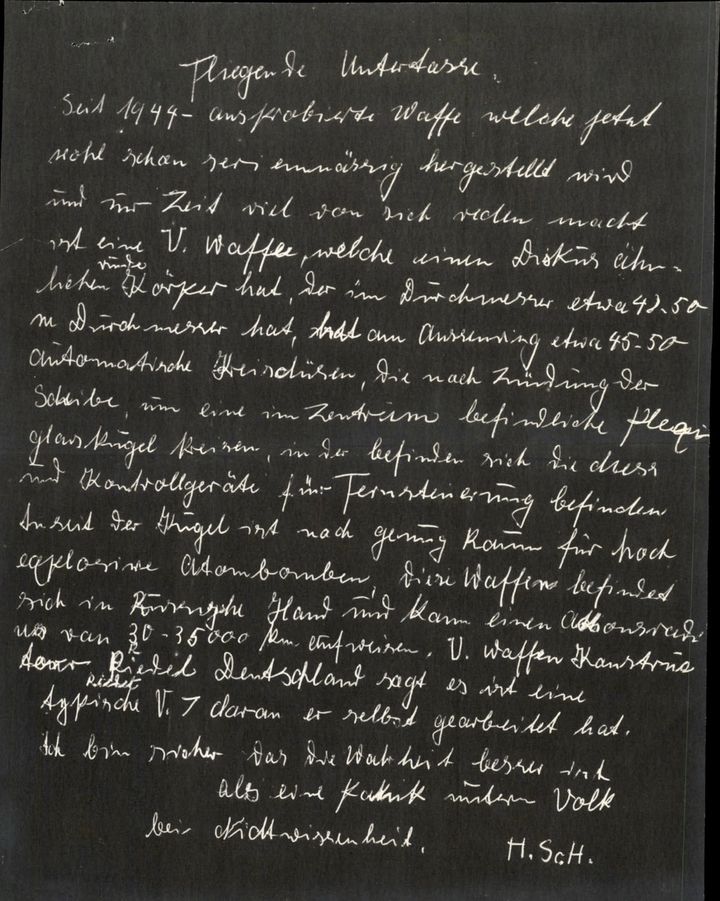 Fliegende Untertasse.
Seit 1944 - ausprobierte Waffe welche jetzt
wohl schon serienmässig hergestellt wird
und zur Zeit viel von sich reden macht
ist eine V. Waffe, welche einen Diskus ähn-
runde
lichen Körper hat, der im Durchmesser etwa 48-50
m Durchmesser hat, hat am Aussenring etwa 45-50
automatische Kreisdüsen, die nach Zündung der
Scheibe, um eine im Zentrum befindliche Plexi
glaskugel kreisen, in der befinden sich die
und Kontrollgeräte für Fernsteuerung befinden
der Kugel ist noch genug Raum für hoch
explosive Atombomben, diese Waffe befindet
sich in Hand und kann einen Aktionsradi
us von 30-35000 km aufweisen. V. Waffen Konstruk
teur Riedel Deutschland sagt es ist eine
Riedel
typische V. 7 daran er selbst gearbeitet hat.
Ich bin sicher das die Wahrheit besser ist
als eine Panik unterm Volk
bei Nichtwissenheit.
H. Sch.